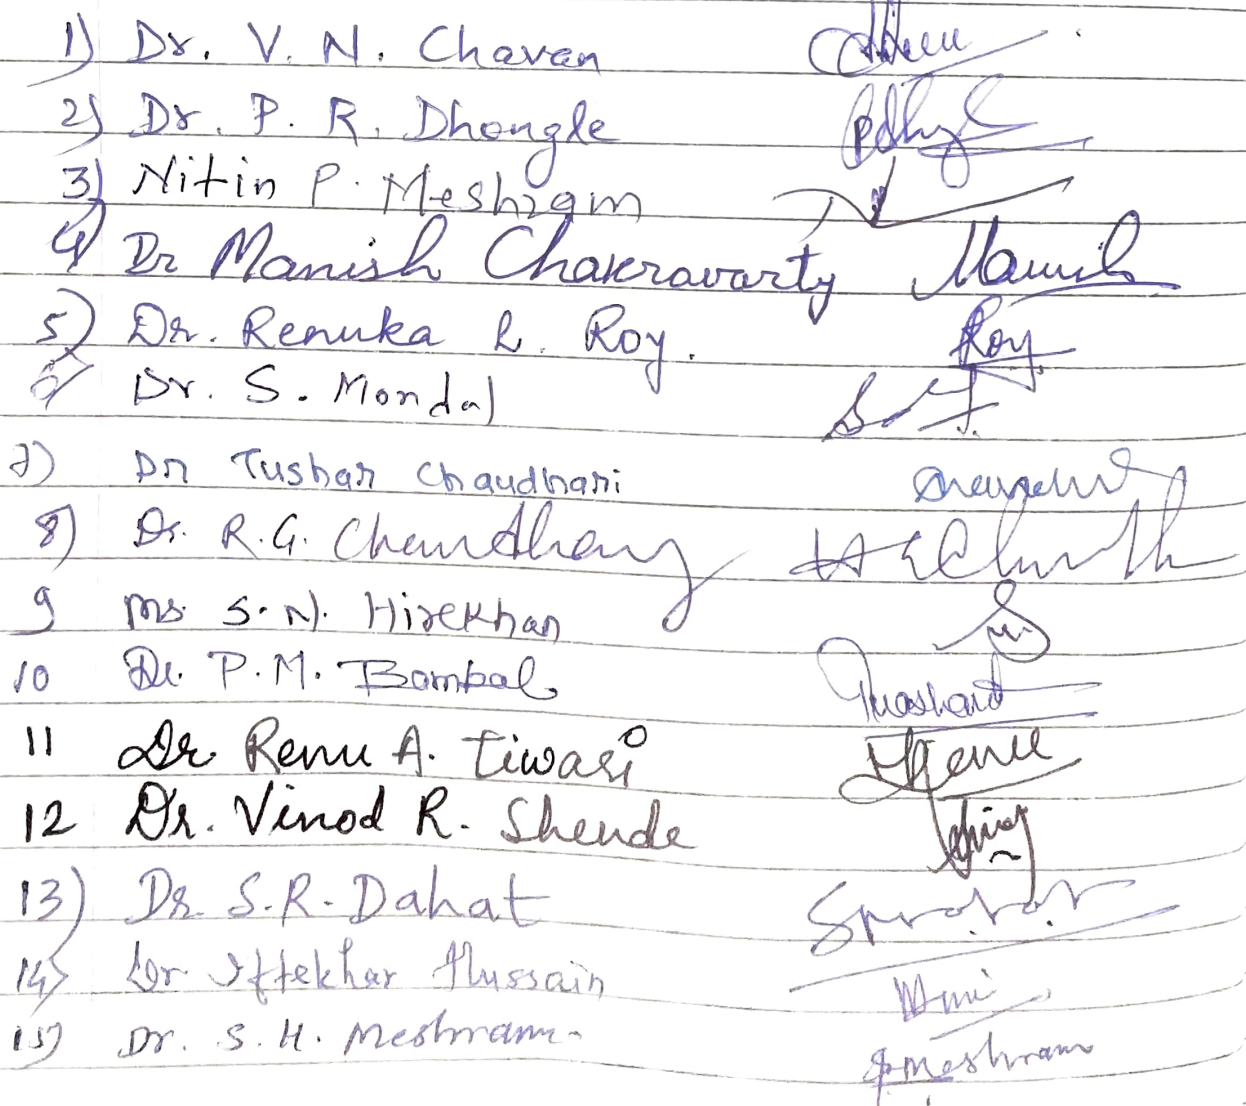 1) Dr. V. N. Chavan
2) Dr. P. R. Dhongle
3) Nitin P. Meshram
4) Dr Manish Chakravarty Manish
5) Dr. Renuka R. Roy. Roy
6) Dr. S. Mondal
7) Dr Tushar Chaudhari
8) Dr. R.G. Chaudhary
9 Ms. S.N. Hirekhan
10 Dr. P.M. Bambal Prashant
11 Dr Renu A. Tiwari Renu
12 Dr. Vinod R. Shende
13) Dr. S.R. Dahat
14) Dr Iftekhar Hussain
15) Dr. S. H. Meshram. Meshram